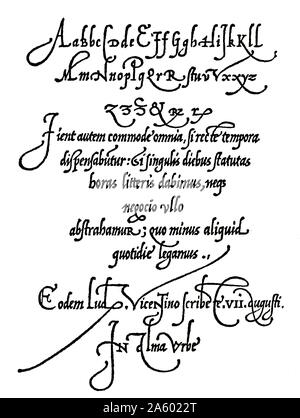 Aabbc Dde Eff Ggh h I i J k K l l,
M m N n o p P q Q r R stuv V x x y z
Z 3 S & & r
Fient autem commode omnia, si recte tempora
dispensabūtur: Et singulis diebus statutas
horas litteris dabimus, neqз
negocio vllo
abstrahamur; quo minus aliquid
quotidie legamus .,
Eodem Lud. Vicentino scribēte .vii. augusti.
IN Alma Vrbe
alamy
Image ID: 2A6022T
www.alamy.com